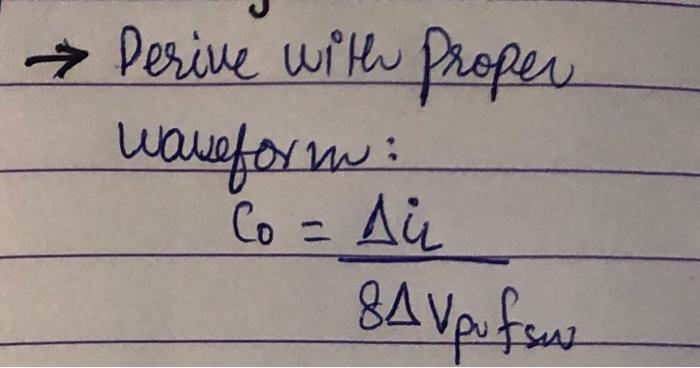 → Derive with Proper
waveform:
Co = ΔiL
8ΔVpv fsw